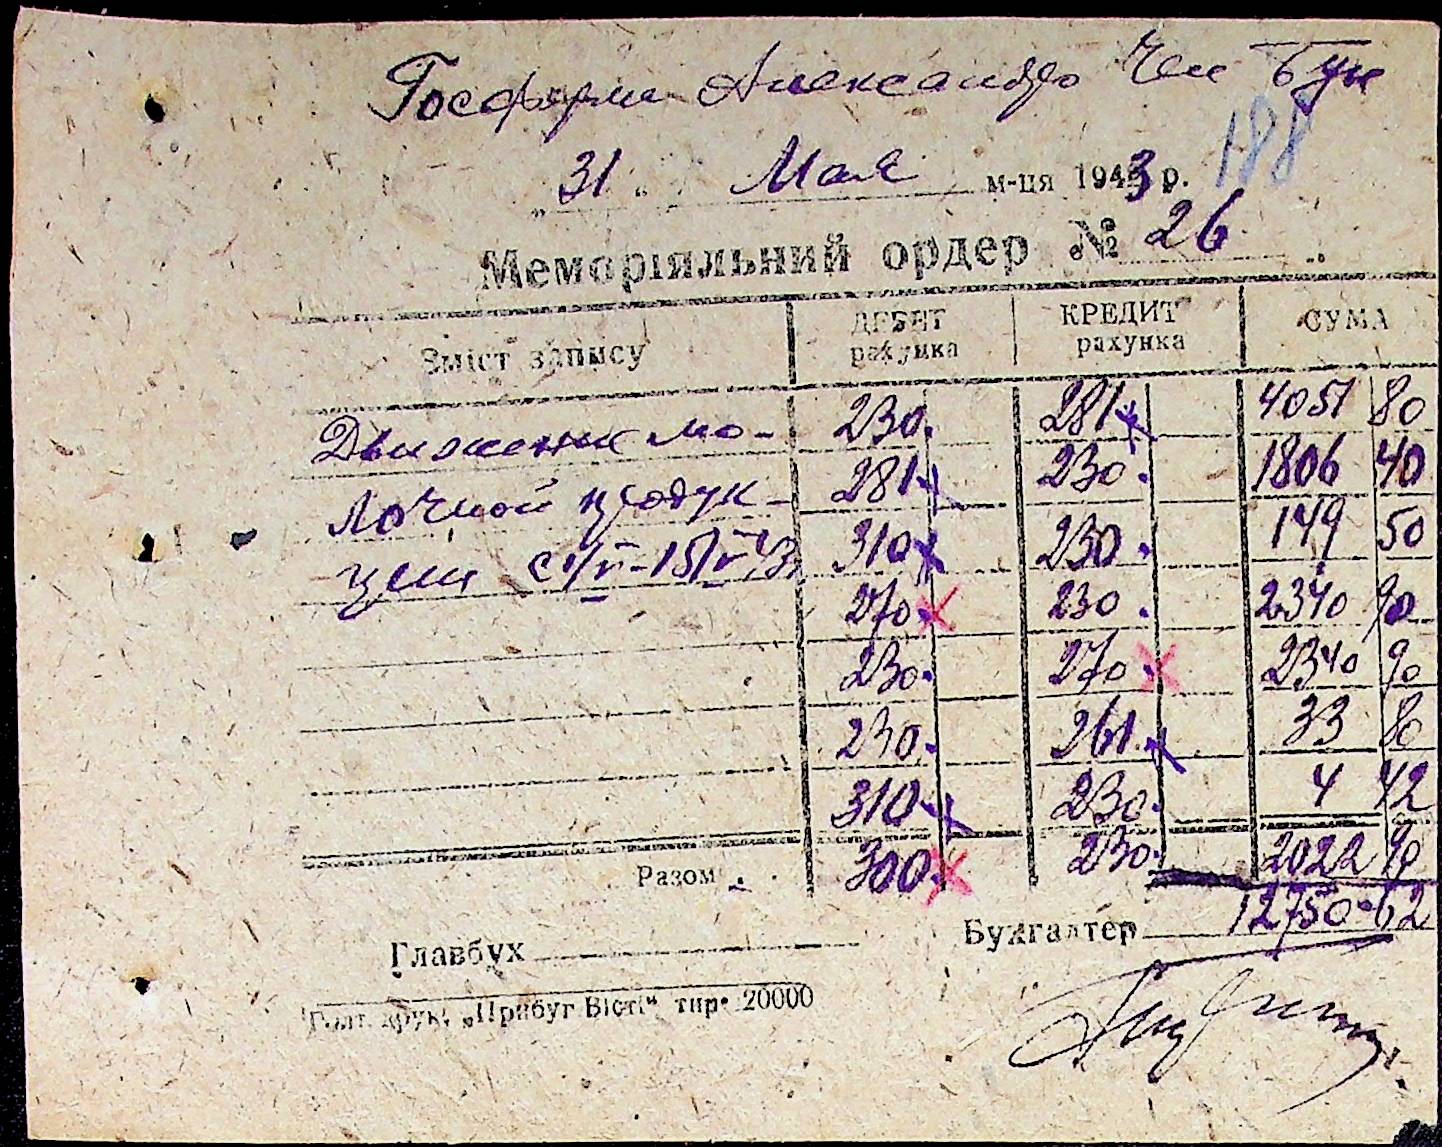 Госферма Александро Чен Бун
188
„31“ Мая м-ця 1943 р.
Меморіяльний ордер № 26
Зміст запису ДЕБЕТ рахунка КРЕДИТ рахунка СУМА
Движение мо- 230. 281 4051 80
лочной продук- 281 230. 1806 40
ции с 1/V-15/V 43 310 230. 149 50
270. 230. 2340 90
230. 270. 2340 90
230. 261. 33 80
310 230. 4 42
Разом 300. 230. 2022 90
Бухгалтер 12750-62
Главбух
друк. „Прибуг Вісті“ тир. 20000